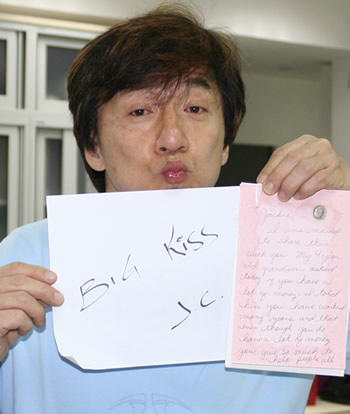 BIG KISS
J C.
Jackie,
I was
to share this
with you. My 4 year
old Jandson asked
today if you have a
lot of money. I told
him you have worked
many years and that
even though you do
have a lot of money
you give so much to
help people all